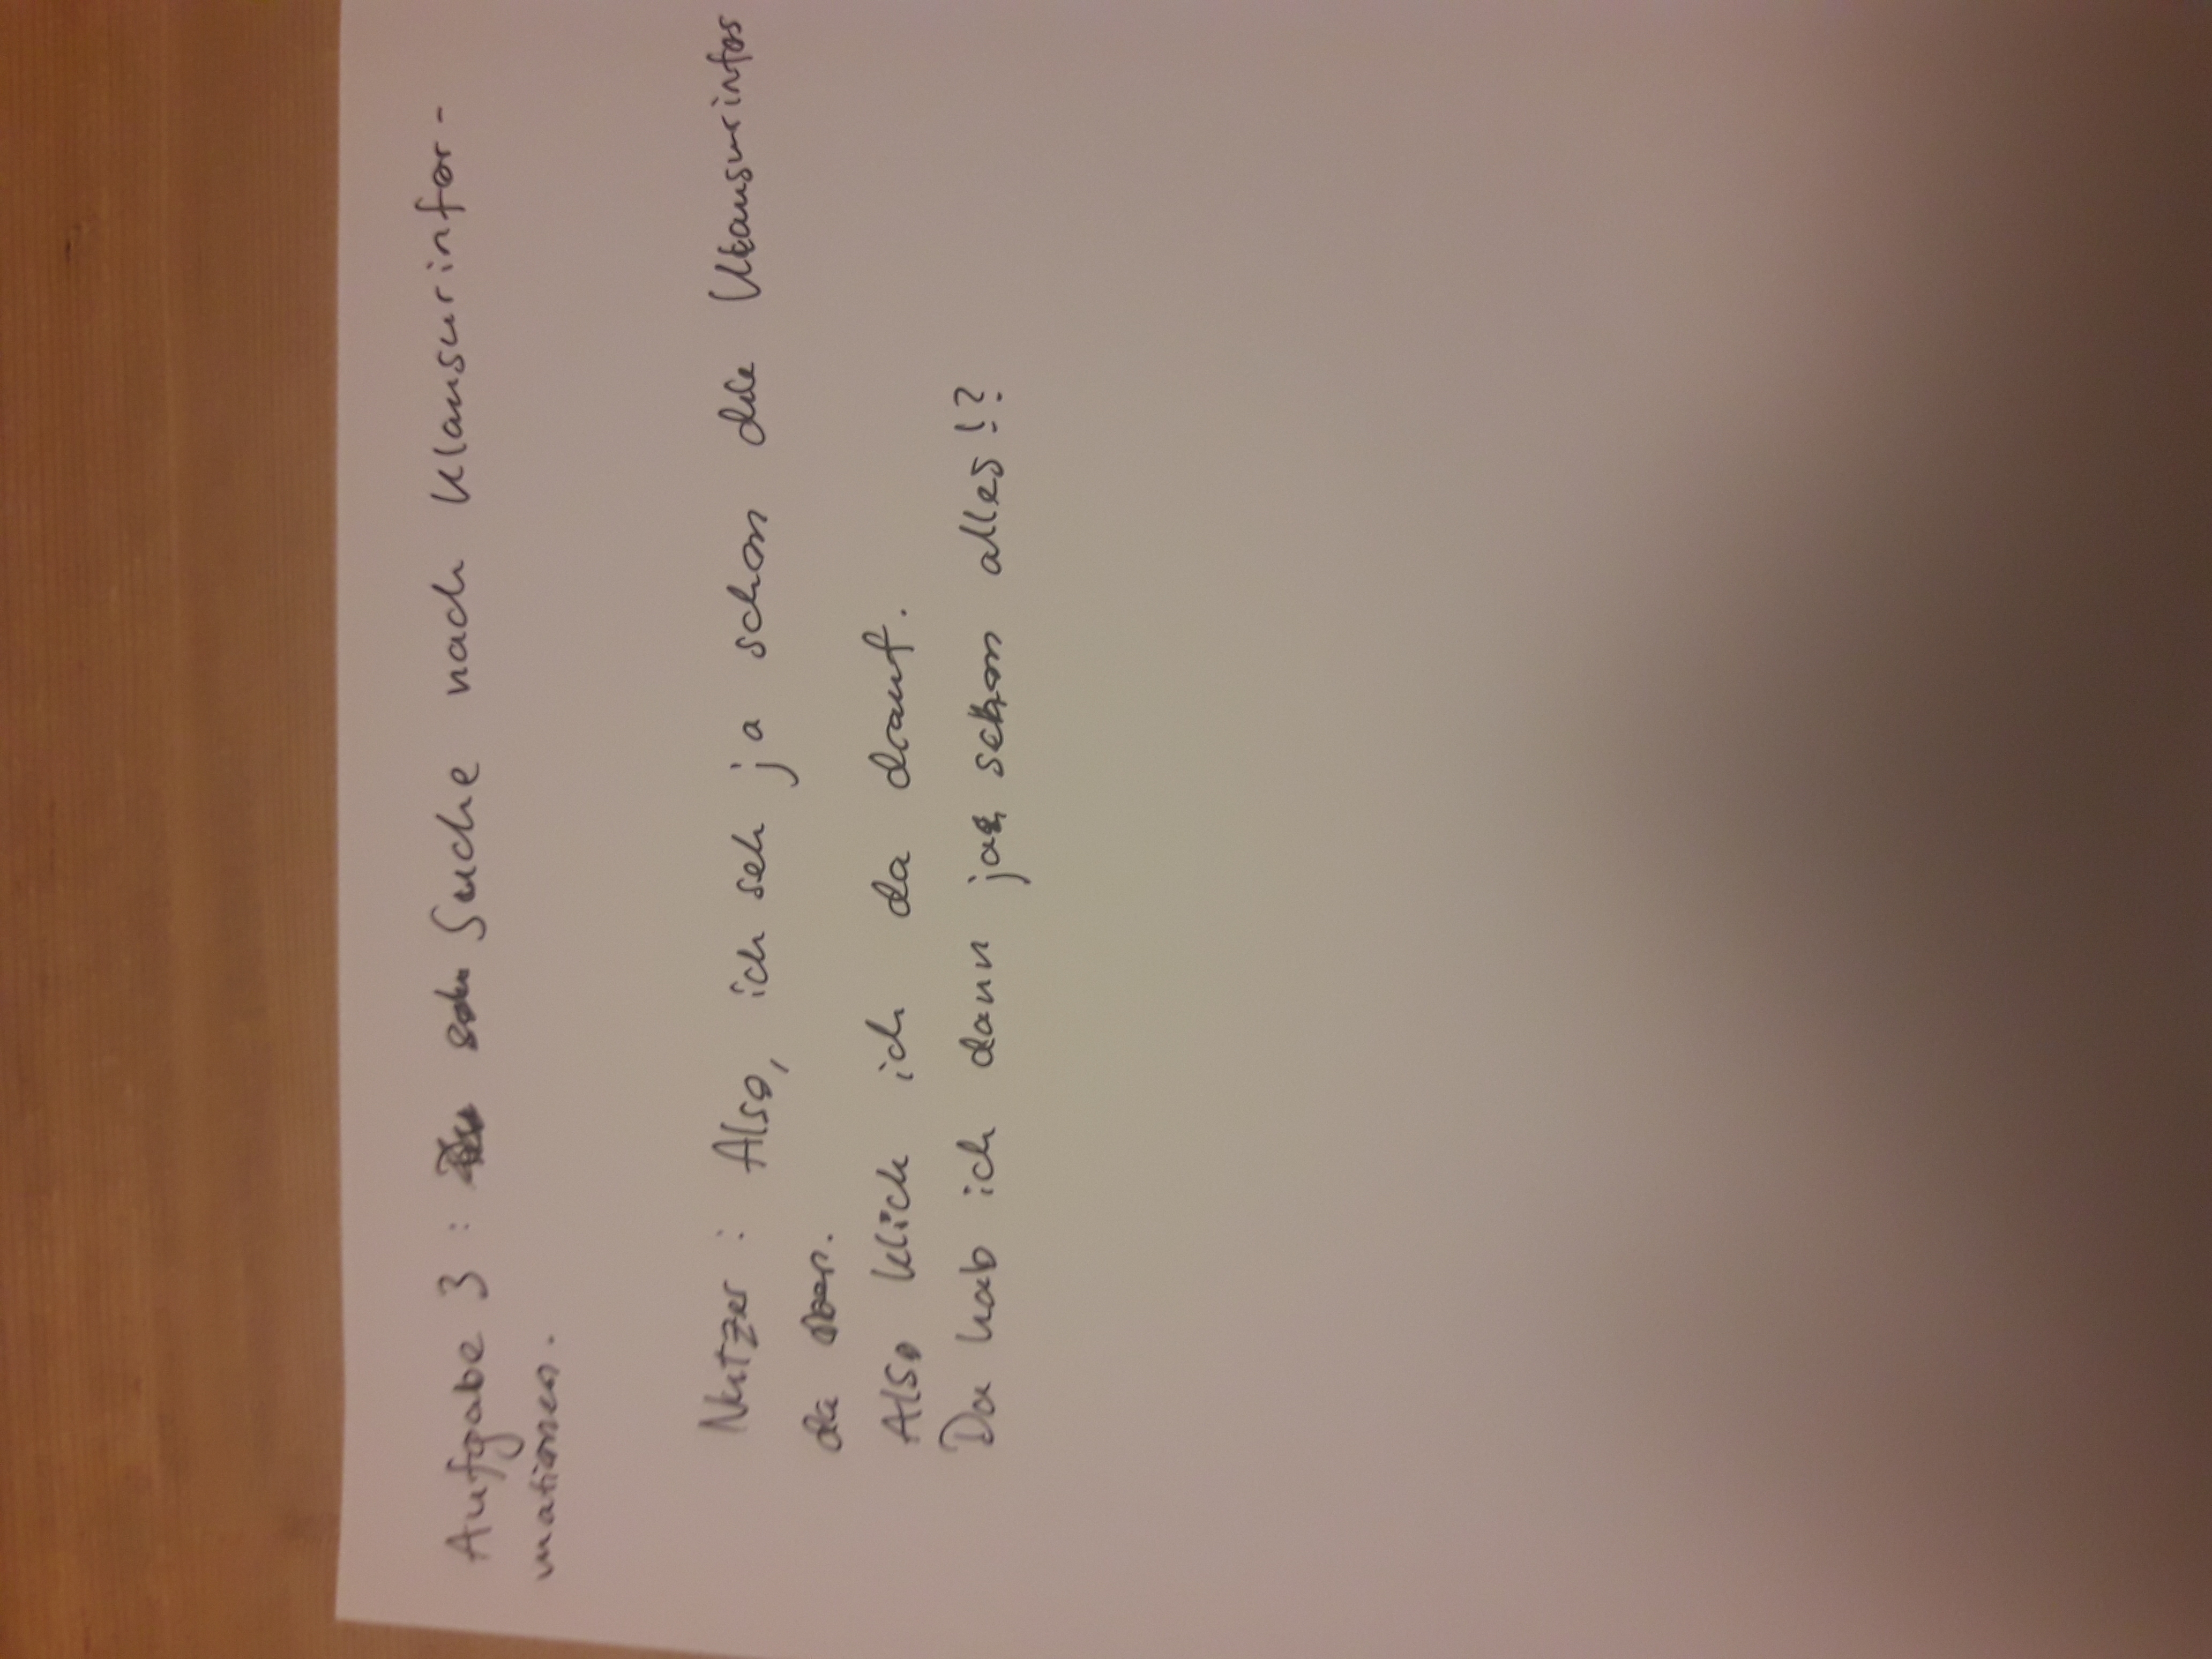 Aufgabe 3: Suche nach Klausurinfor-
mationen.
Nutzer: Also, ich seh ja schon die Klausurinfos
da oben.
Also klick ich da drauf.
Da hab ich dann ja schon alles!?